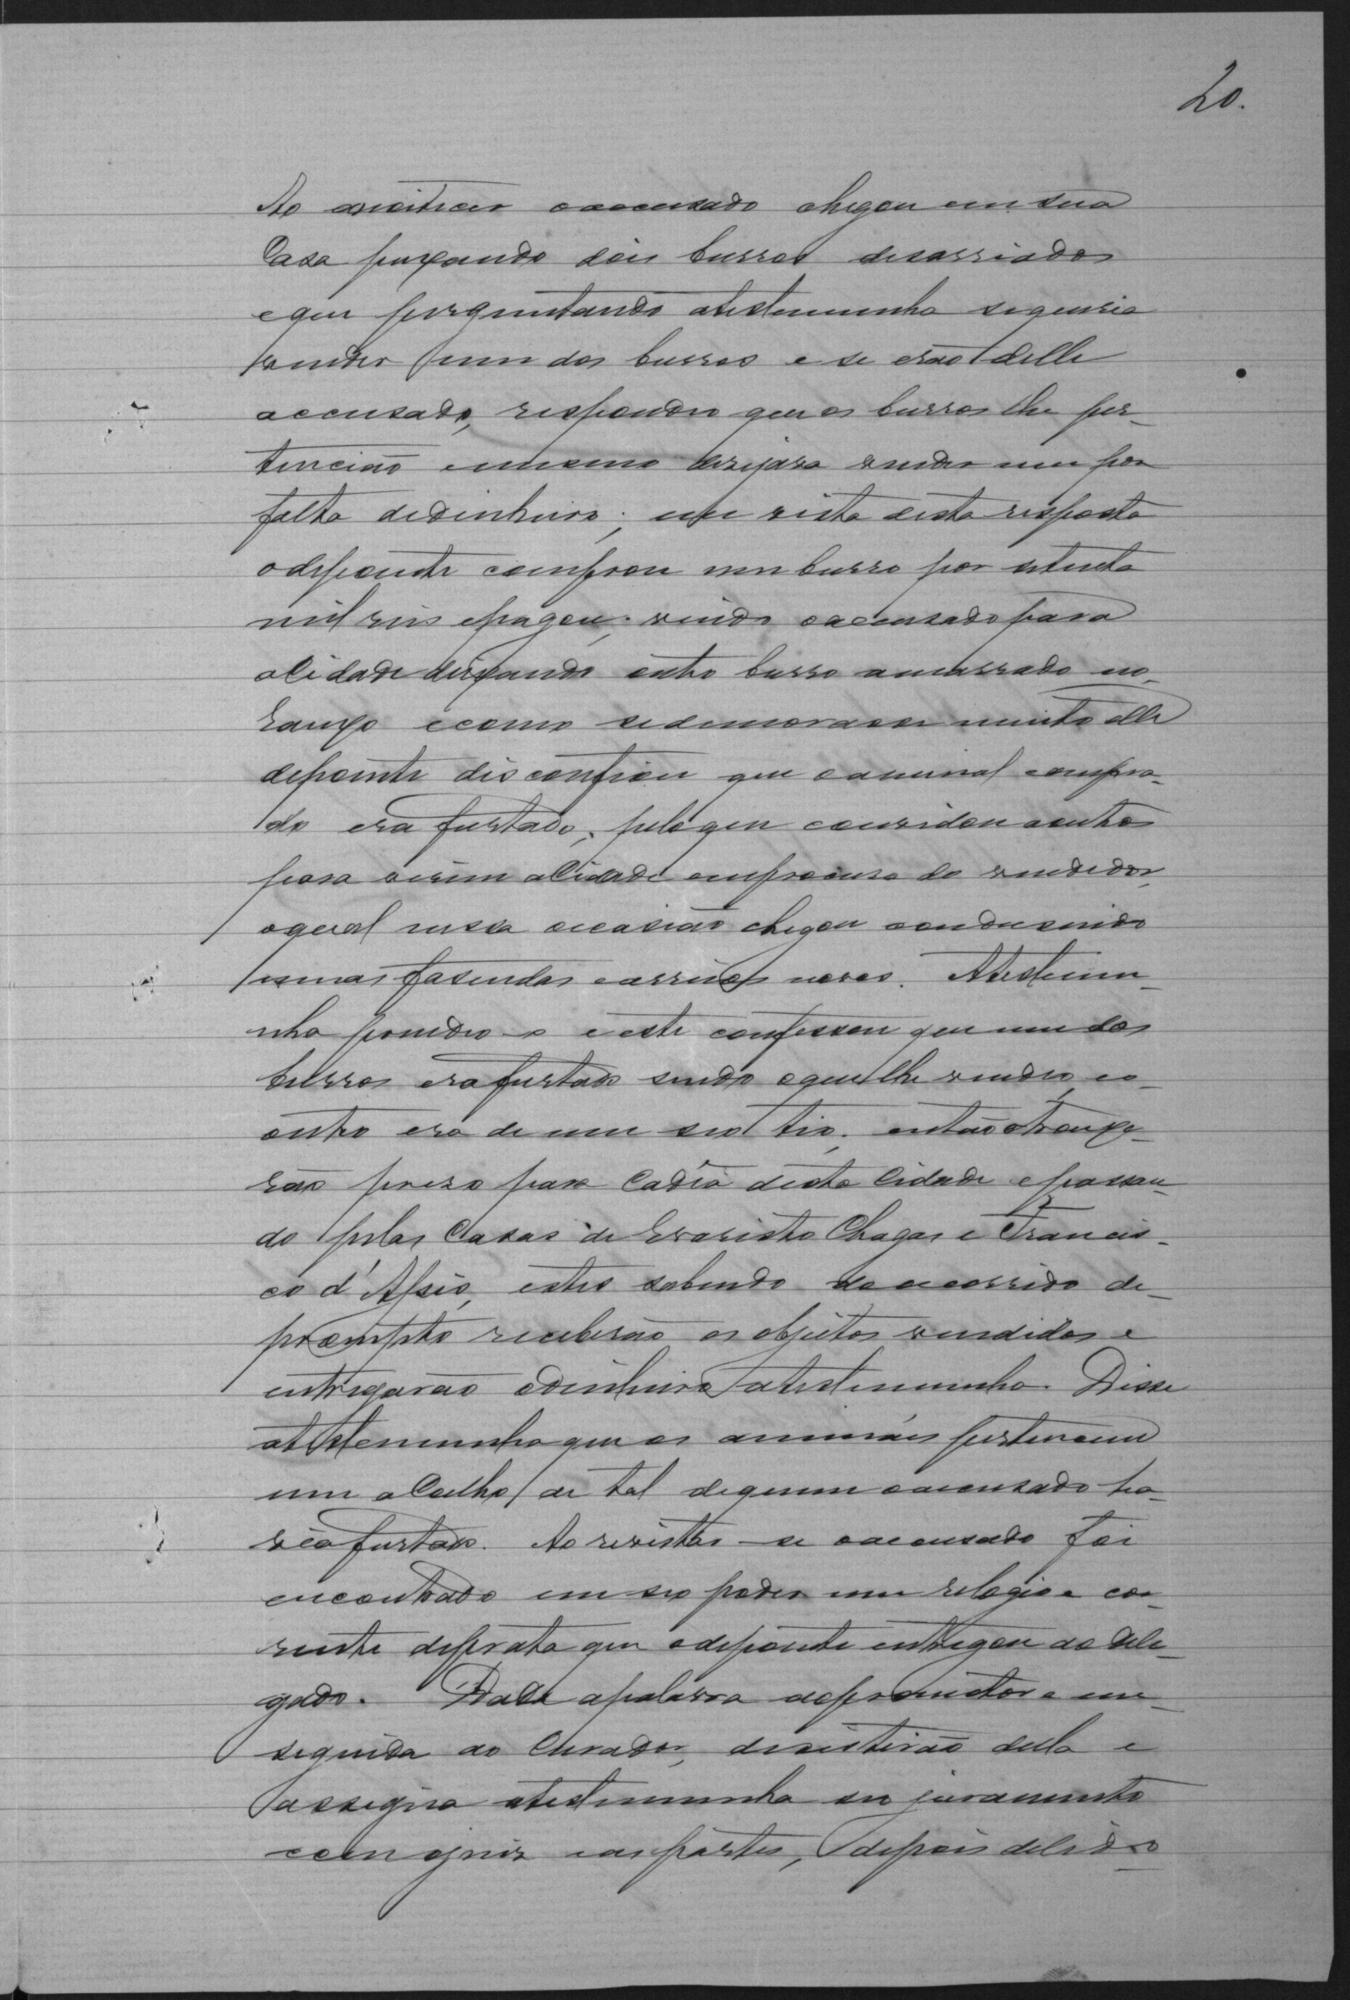 20.
Ao anoitecer o accusado chegou em sua
Casa puxando dois burros desarriados
e que perguntando a testemunha se queria
vender um dos burros e se erão delle
accusado, respondeo que os burros lhe per-
tencião e mesmo desejava vender um por
falta de dinheiro; em vista desta resposta
o depoente comprou um burro por setenta
mil reis e pagou; vindo o accusado para
a Cidade deixando outro burro amarrado no
rancho e como se demorasse muito elle
depoente disconfiou que o animal compra-
do era furtado; pelo que convidou a outros
para virem a Cidade em procura do vendedor,
o qual nessa occasião chegou condusindo
umas fasendas e arreios novos. A testemu-
nha prendeo-o e este confessou que um dos
burros era furtado sendo o que lhe vendeo, e o
outro era de um seo tio; então o trouxe-
rão preso para Cadêa desta Cidade e passan-
do pelas Casas de Evaristo Chagas e Francis-
co d'Assis, estes sabendo do occorrido de
prompto receberão os objectos vendidos e
entregarão o dinheiro a testemunha. Disse
a testemunha que os animaes pertencem
um a Coelho de tal de quem o accusado ha-
via furtado. Ao revistar-se o accusado foi
encontrado em seo poder um relogio e cor-
rente de prata que o depoente entregou ao Dele-
gado. Dada a palavra ao promotor e em
seguida ao Curador, desistirão della e
assigna a testemunha seo juramento
com o juiz e as partes, depois de lido